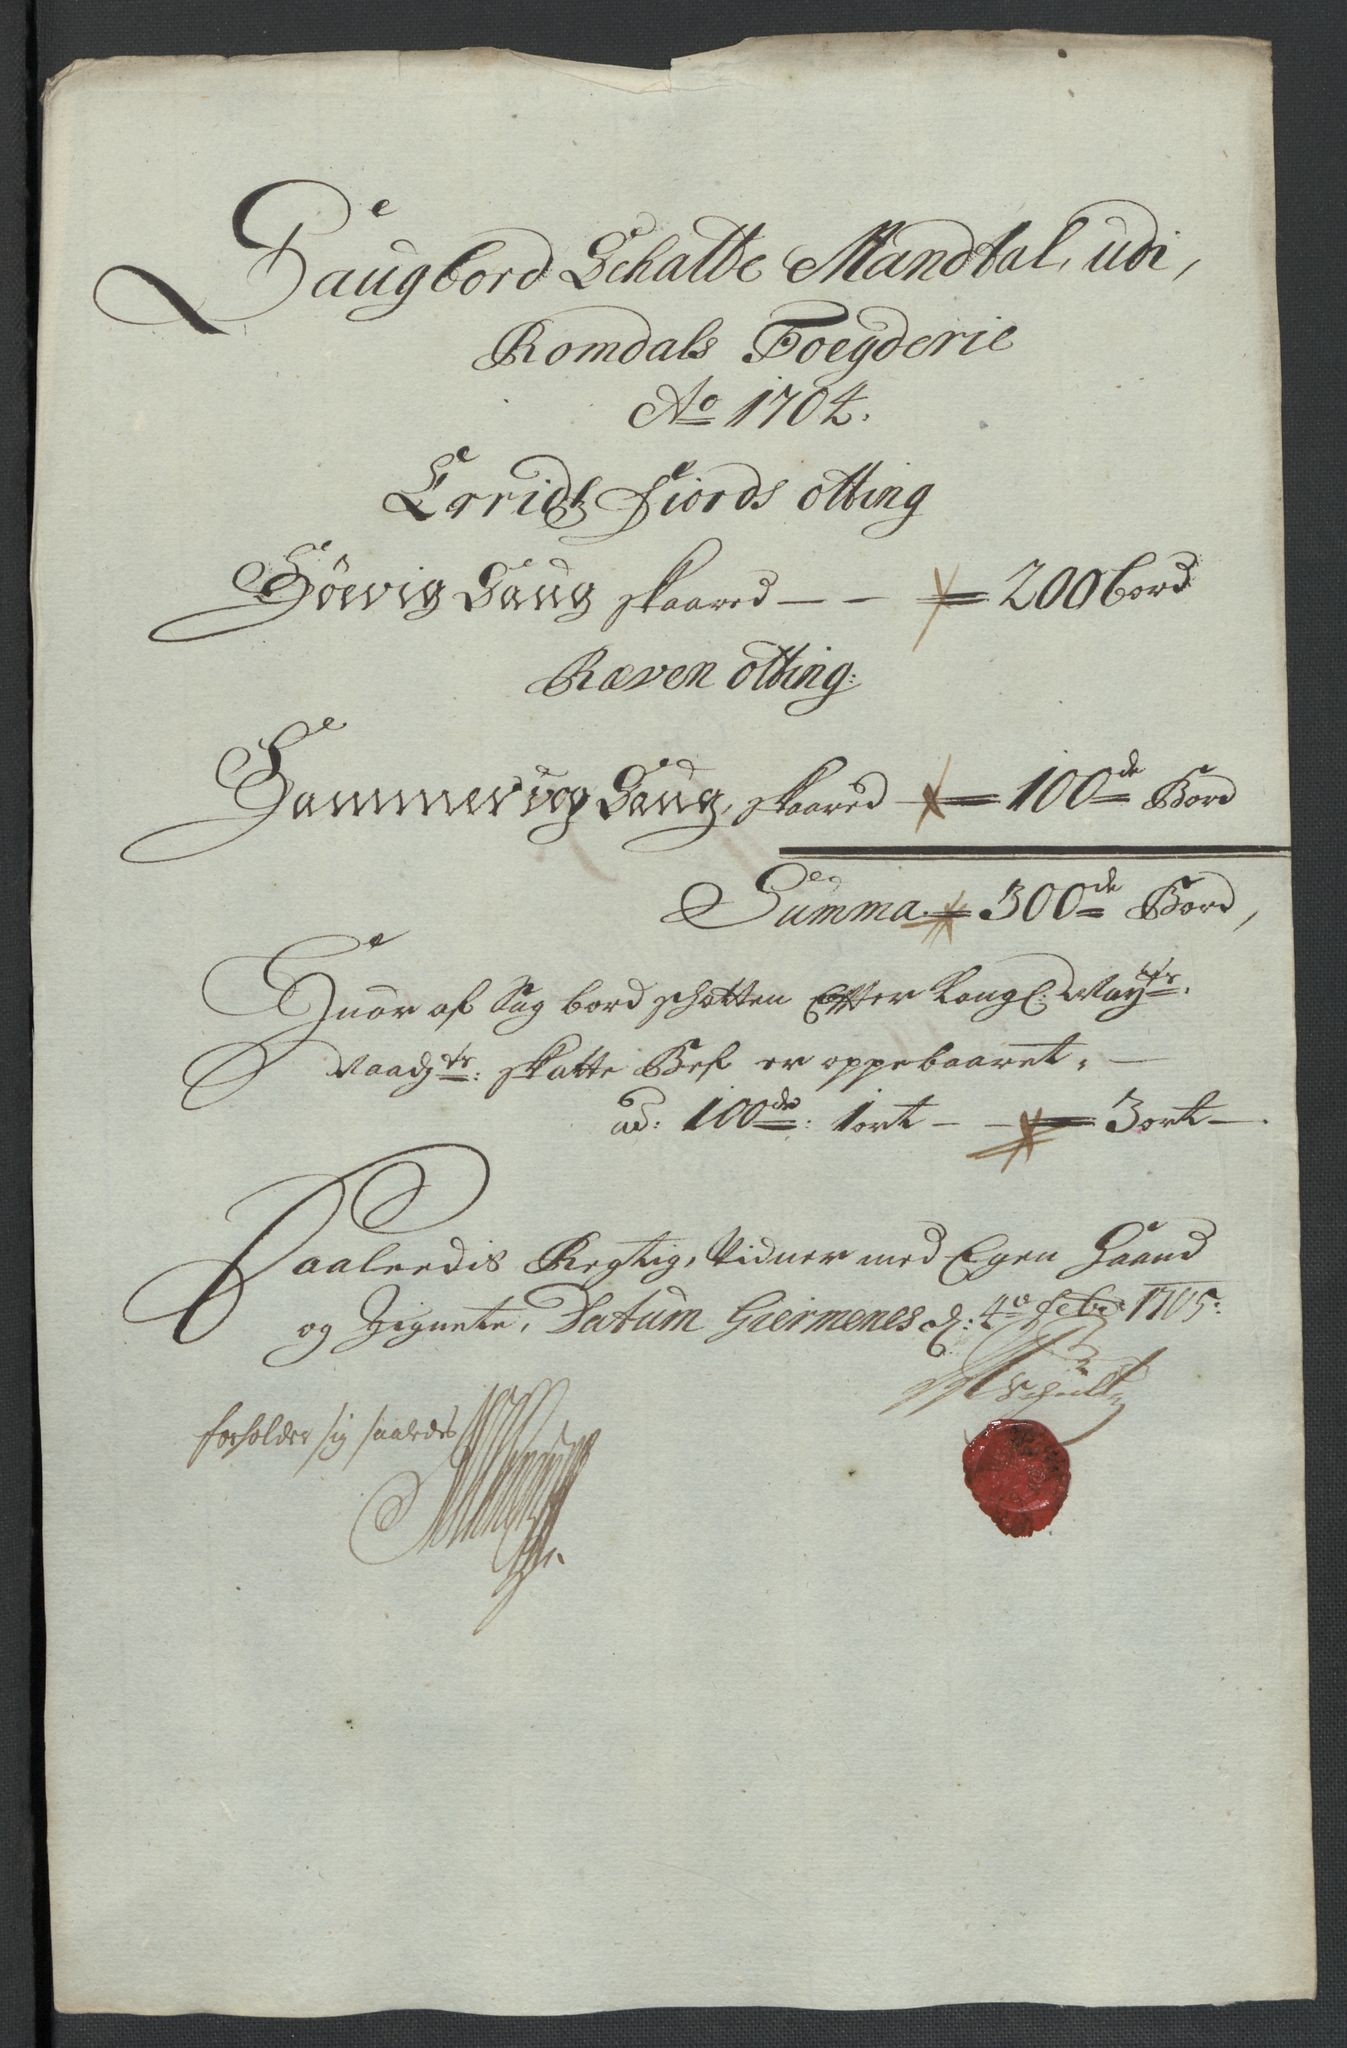 Saugbord Schatte Mandtal, udi,
Romdals Foegderie
Ao 1704.
Erridtz Fiords otting
Höevig Saug skaared — — 200 bord
Ræven otting:
Hammervog Saug, skaared — 100de Bord
Summa — 300de Bord,
Huor af Sag bord schatten Effter Kongl: Mayts.
Naadgste: skatte Bef er oppebaaret, —
ad: 100de: 1 ort — — 3 ort —.
Saaleedis Regtig, Vidner med Egen Haand
og Zignete, Datum Giermenes d: 4o febr: 1705:
forholder sig saaledes